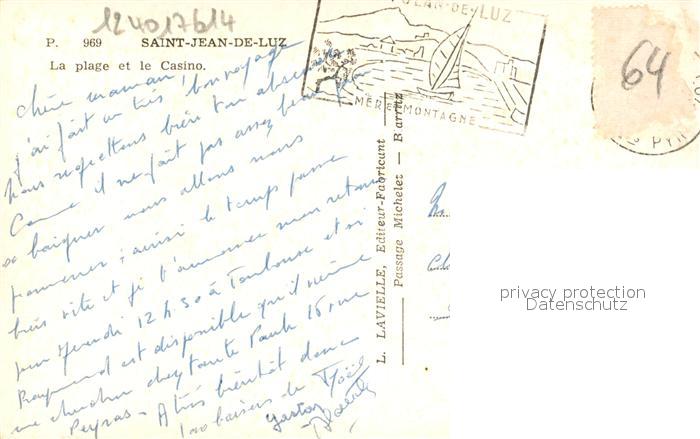 124017614
P. 969 SAINT-JEAN-DE-LUZ
La plage et le Casino.
JEAN-DE-LUZ
MER MONTAGNE
64
PYR
Chère maman,
j'ai fait un très bon voyage
nous regrettons bien ton absence
Comme il ne fait pas assez beau pour
se baigner nous allons nous
promener ; ainsi le temps passe
très vite et je t'annonce mon retour
pour Vendredi 12 h 30 à Toulouse et si
Raymond est disponible qu'il vienne
me chercher chez tante Paule 16 rue
Peyras - A très bientôt donc
100 baisers de
Gaston
L. LAVIELLE, Editeur-Fabricant
Passage Michelet — Biarritz
privacy protection
Datenschutz